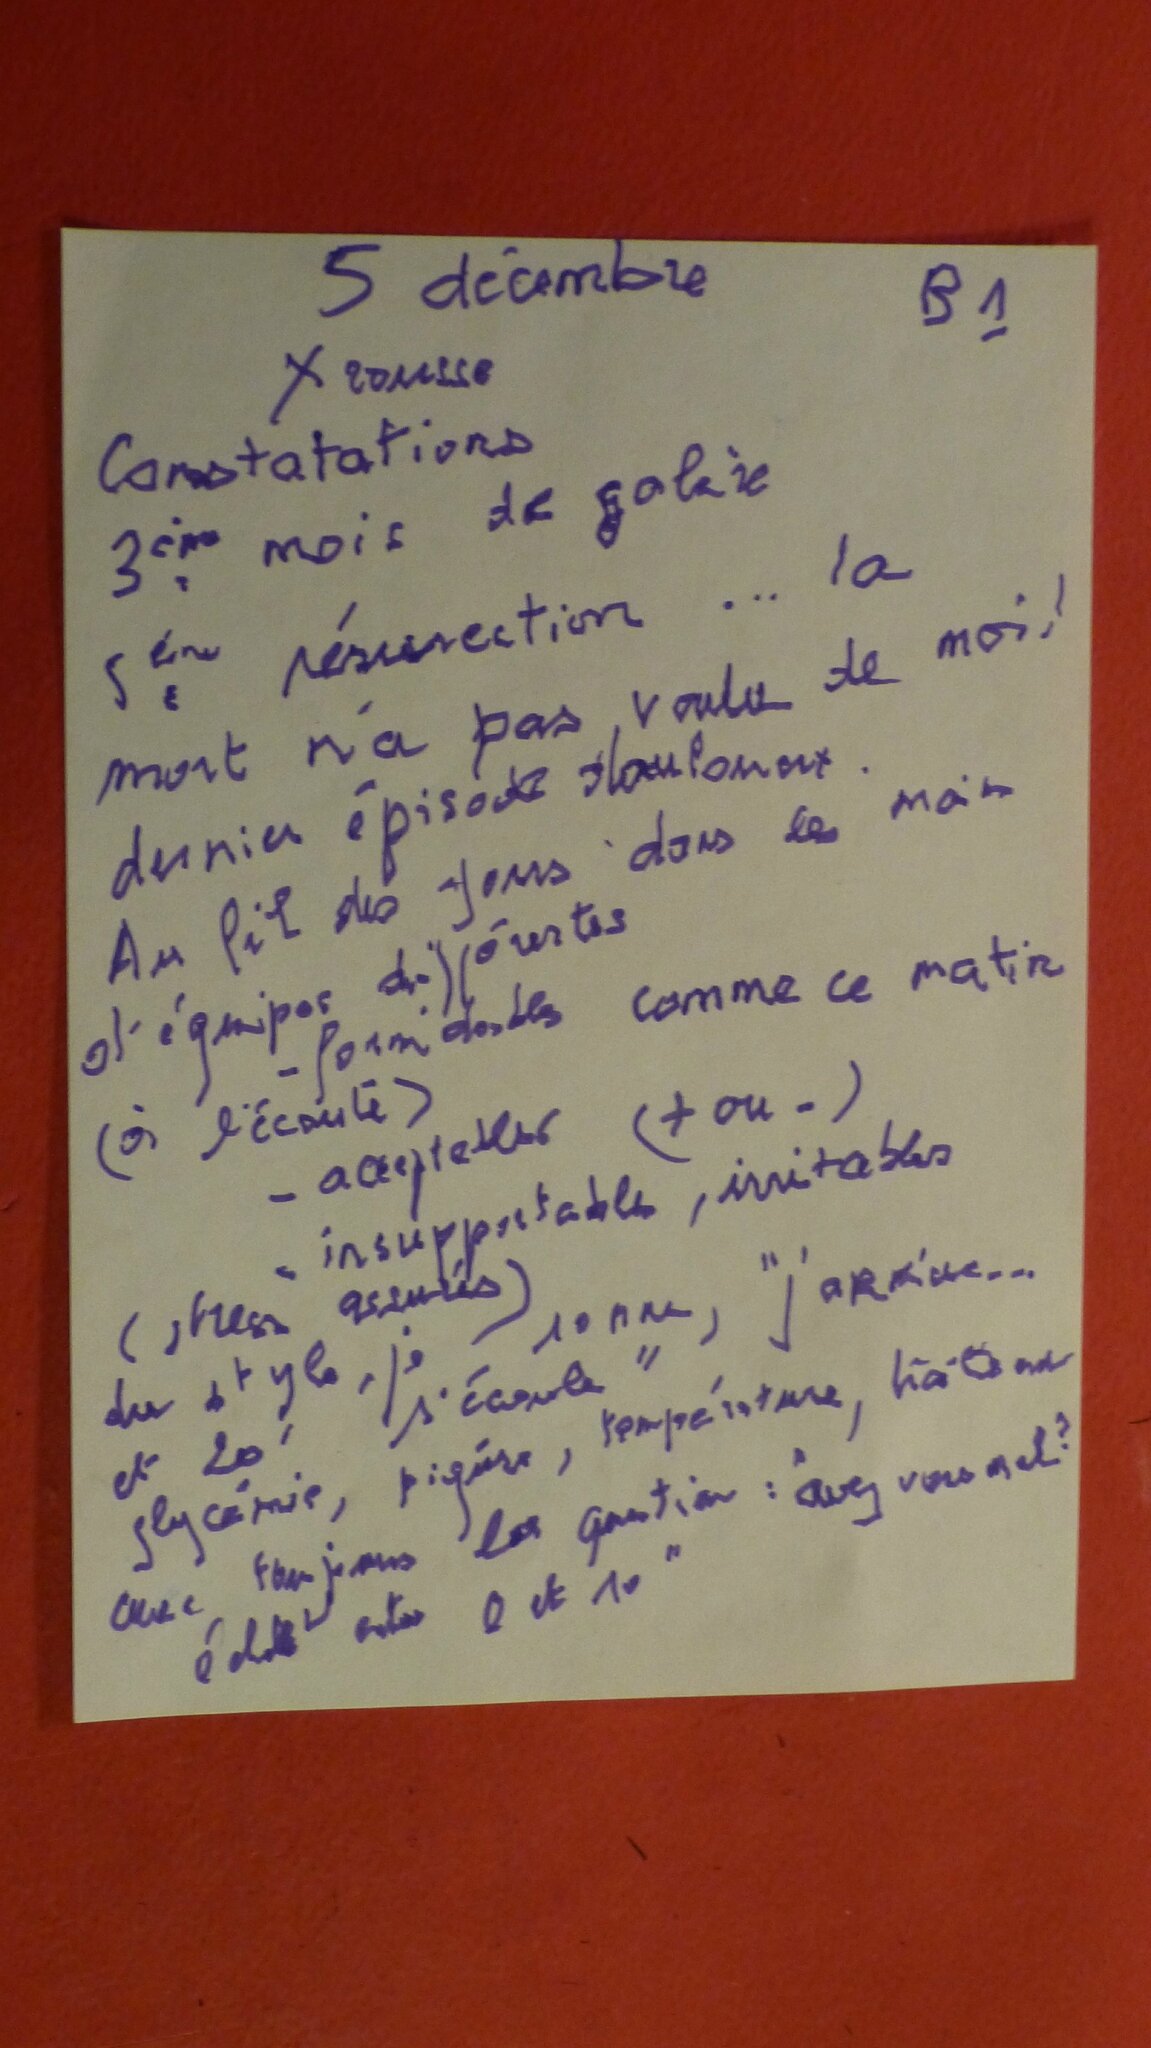 5 décembre B1
X rousse
Constatations
3ème mois de galère
5ème résurection ... la
mort n'a pas voulu de moi!
dernier épisode douloureux.
Au fil des jours dans les mains
d'équipes différentes
- formidables comme ce matin
(à l'écoute)
- acceptables (+ ou -)
- insupportables, irritables
(stress assurés)
du style, je sonne, "j'arrive...
et 20' s'écoule"
glycémie, piqûre, température,
avec toujours la question : "avez vous mal?
entre 0 et 10"